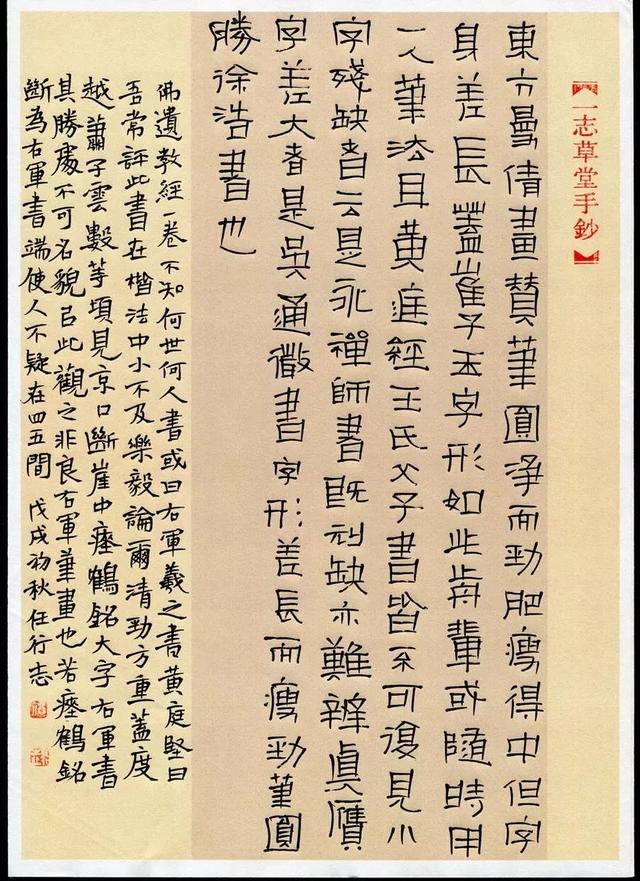 一志草堂手鈔
東方曼倩畫贊筆圓淨而勁肥瘦得中但字
身差長蓋崔子玉字形如此前輩或隨時用
一人筆法耳黃庭經王氏父子書皆不可復見小
字殘缺者云是永禪師書既刓缺亦難辨真贋
字差大者是吳通微書字形差長而瘦勁筆圓
勝徐浩書也
佛遺教經一卷不知何世何人書或曰右軍羲之書黃庭堅曰
吾常評此書在楷法中小不及樂毅論爾清勁方重蓋度
越蕭子雲數等頃見京口斷崖中瘞鶴銘大字右軍書
其勝處不可名貌以此觀之非良右軍筆畫也若瘞鶴銘
斷為右軍書端使人不疑在四五間 戊戌初秋任行志